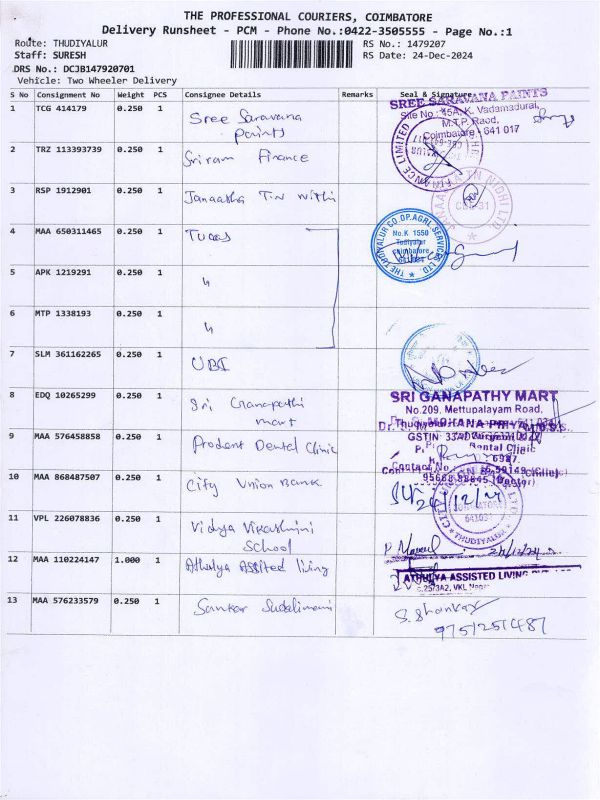 THE PROFESSIONAL COURIERS, COIMBATORE
Delivery Runsheet - PCM - Phone No.:0422-3505555 - Page No.:1
Route: THUDIYALUR
RS No.: 1479207
Staff: SURESH
RS Date: 24-Dec-2024
DRS No.: DCJB147920701
Vehicle: Two Wheeler Delivery
S No Consignment No Weight PCS Consignee Details Remarks Seal & Signature
1 TCG 414179 0.250 1 Sree Saravana
paints
SREE SARAVANA PAINTS
Site No : 45A, K. Vadamadurai,
M.T.P. Raod,
Coimbatore - 641 017
2 TRZ 113393739 0.250 1 Sriram Finance
3 RSP 1912901 0.250 1
4 MAA 650311465 0.250 1 Tucas
THE THUDIYALUR CO.OP.AGRL.SERVICES LTD.
No.K 1550
Tudiyalur
coimbatore
5 APK 1219291 0.250 1 "
6 MTP 1338193 0.250 1 "
7 SLM 361162265 0.250 1 UBI
8 EDQ 10265299 0.250 1 Sri Ganapathi
mart
SRI GANAPATHY MART
No.209, Mettupalayam Road,
9 MAA 576458858 0.250 1 Prodent Dental Clinic
Dental Clinic
10 MAA 868487507 0.250 1 City Union Bank
24/12/24
THUDIYALUR
11 VPL 226078836 0.250 1 Vidya Vikashini
School
12 MAA 110224147 1.000 1 Athulya Assited living
ATHULYA ASSISTED LIVING
13 MAA 576233579 0.250 1 Sankar Sudalimani
S. Shankar
9751251487